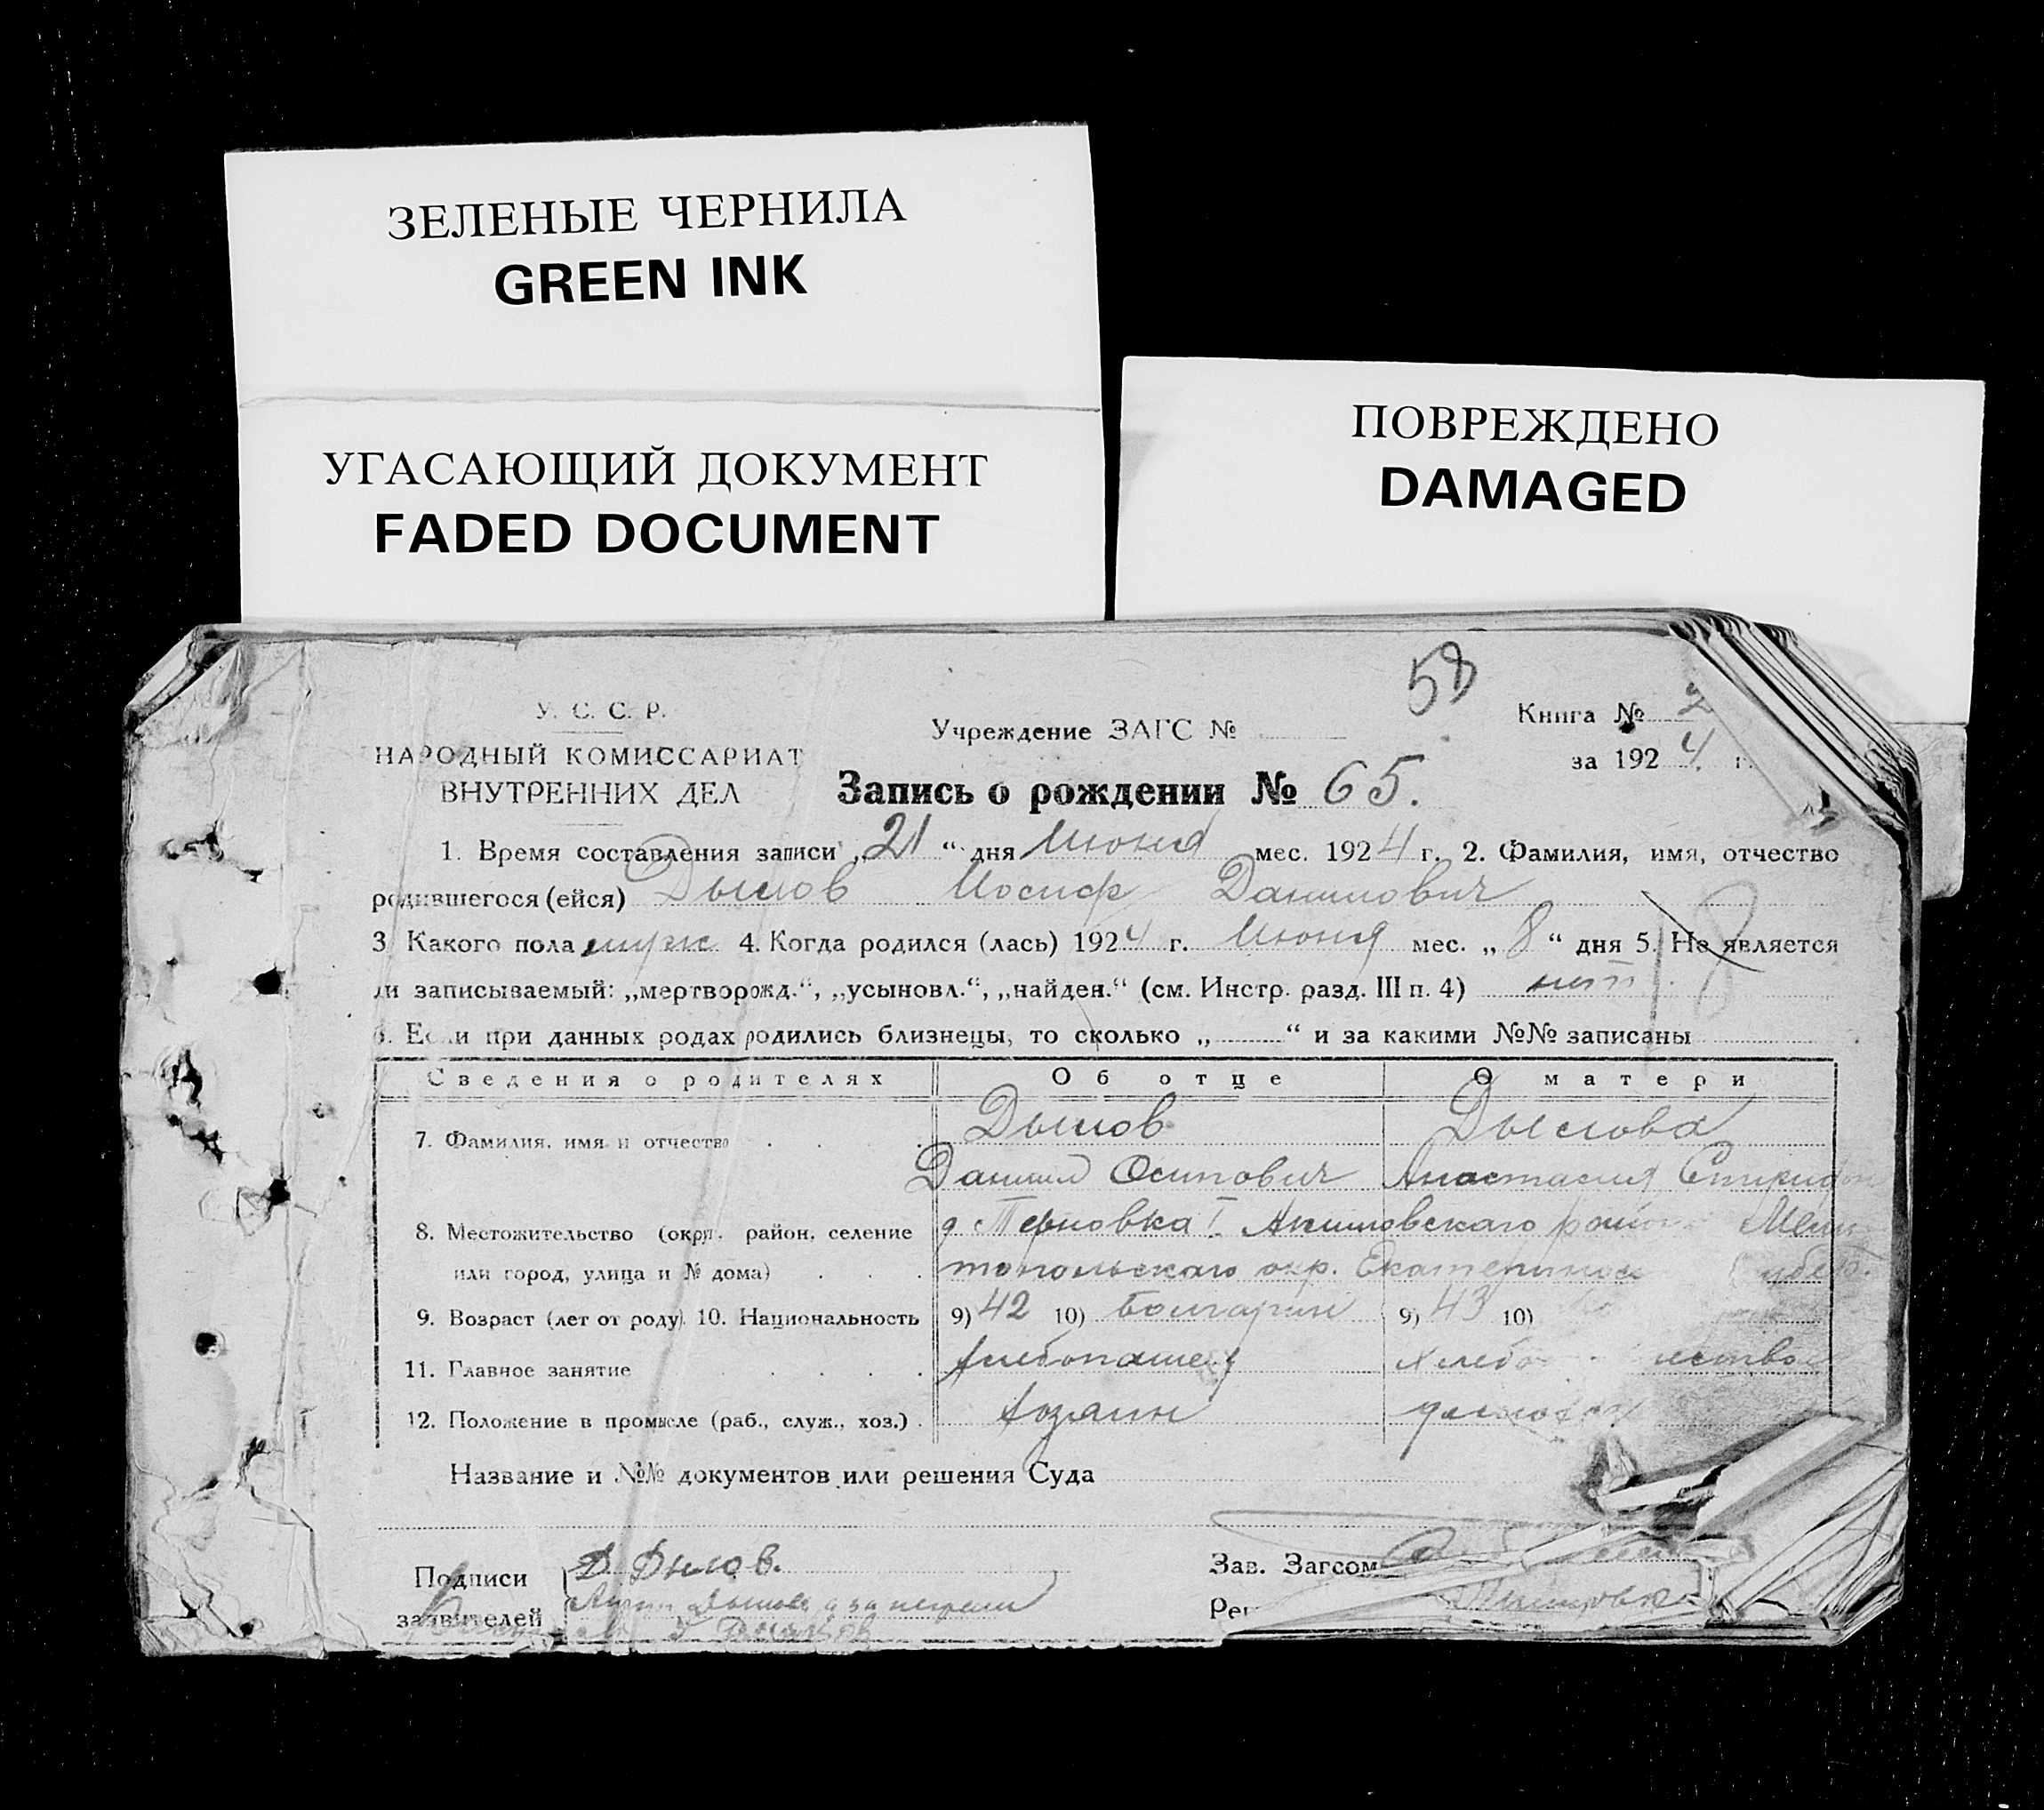 ЗЕЛЕНЫЕ ЧЕРНИЛА
GREEN INK
УГАСАЮЩИЙ ДОКУМЕНТ
FADED DOCUMENT
ПОВРЕЖДЕНО
DAMAGED
58
У. С. С. Р.
НАРОДНЫЙ КОМИССАРИАТ
ВНУТРЕННИХ ДЕЛ
Учреждение ЗАГС №
Книга № 2
за 1924 г.
Запись о рождении № 65.
1. Время составления записи „21“ дня Июня мес. 1924 г. 2. Фамилия, имя, отчество
родившегося (ейся) Дымов Иосиф Данилович
3. Какого пола муж 4. Когда родился (лась) 1924 г. Июня мес. „8“ дня 5. Не является
ли записываемый: „мертворожд.“, „усыновл.“, „найден.“ (см. Инстр. разд. III п. 4) нет
6. Если при данных родах родились близнецы, то сколько „ “ и за какими №№ записаны
Сведения о родителях Об отце О матери
7. Фамилия, имя и отчество Дымов Дымова
Даниил Осипович Анастасия
8. Местожительство (окр., район, селение д. Терновка I Акимовскаго Мели
или город, улица и № дома) топольскаго окр.
9. Возраст (лет от роду) 10. Национальность 9) 42 10) Болгарин 9) 43 10)
11. Главное занятие хлебопашец
12. Положение в промысле (раб., служ., хоз.) хозяин
Название и №№ документов или решения Суда
Подписи Д Дымов.
заявителей
Зав. Загсом